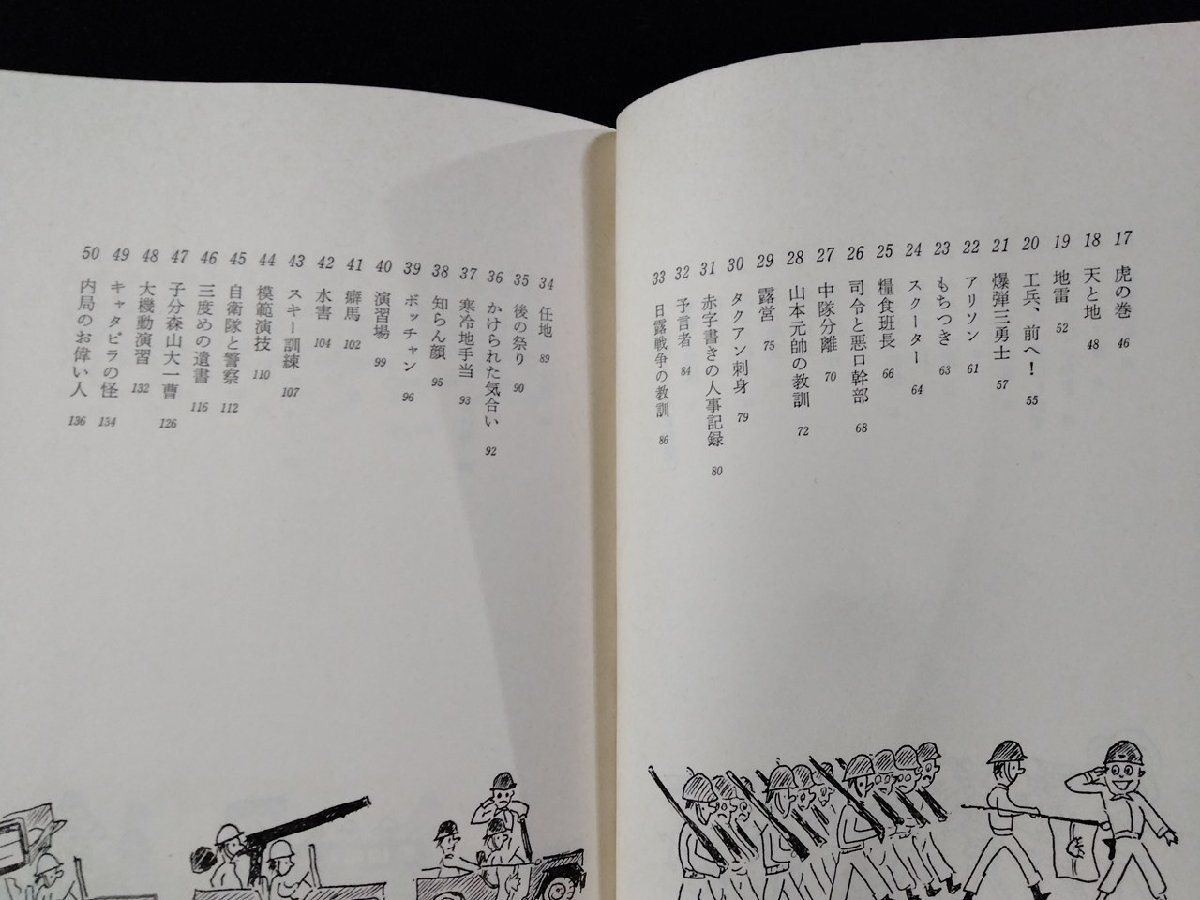 17 虎の巻 46
18 天と地 48
19 地雷 52
20 工兵、前へ! 55
21 爆弾三勇士 57
22 アリソン 61
23 もちつき 63
24 スクーター 64
25 糧食班長 66
26 司令と悪口幹部 68
27 中隊分離 70
28 山本元帥の教訓 72
29 露営 75
30 タクアン刺身 79
31 赤字書きの人事記録 80
32 予言者 84
33 日露戦争の教訓 86
34 任地 89
35 後の祭り 90
36 かけられた気合い 92
37 寒冷地手当 93
38 知らん顔 95
39 ボッチャン 96
40 演習場 99
41 癖馬 102
42 水害 104
43 スキー訓練 107
44 模範演技 110
45 自衛隊と警察 112
46 三度めの遺書 116
47 子分森山大一曹 126
48 大機動演習 132
49 キャタピラの怪 134
50 内局のお偉い人 136